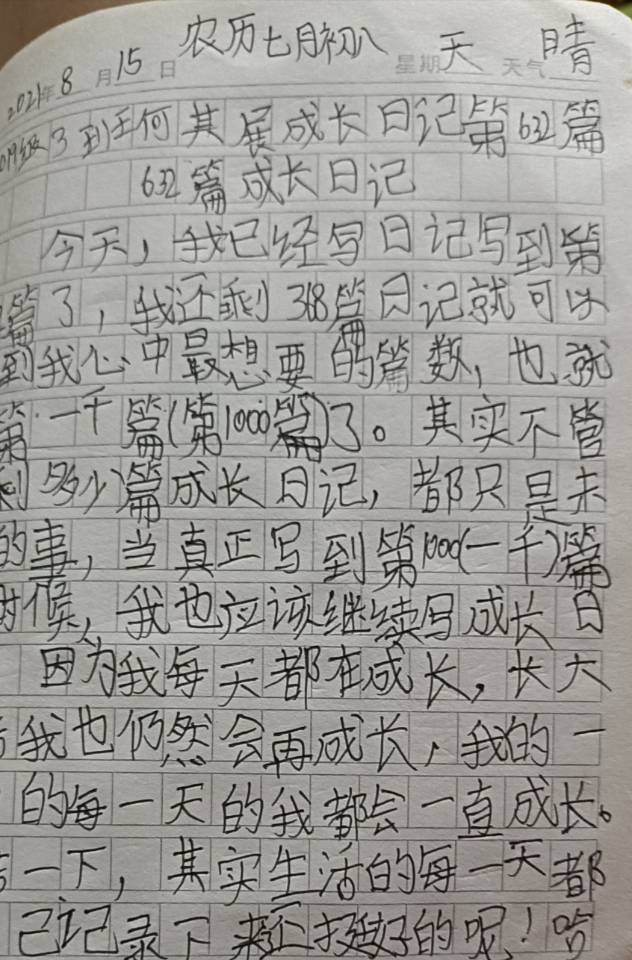 农历七月初八
2021年8月15日 星期天 天气晴
级3到王何其展成长日记第632篇
632篇成长日记
今天,我已经写日记写到第
篇了,我还剩368篇日记就可以
到我心中最想要的篇数,也就
第一千篇(第1000篇)了。其实不管
剩多少篇成长日记,都只是未
的事,当真正写到第1000(一千)篇
时候,我也应该继续写成长日
因为我每天都在成长,长大
我也仍然会再成长,我的一
的每一天的我都会一直成长。
一下,其实生活的每一天都
己记录下来还挺好的呢!哈